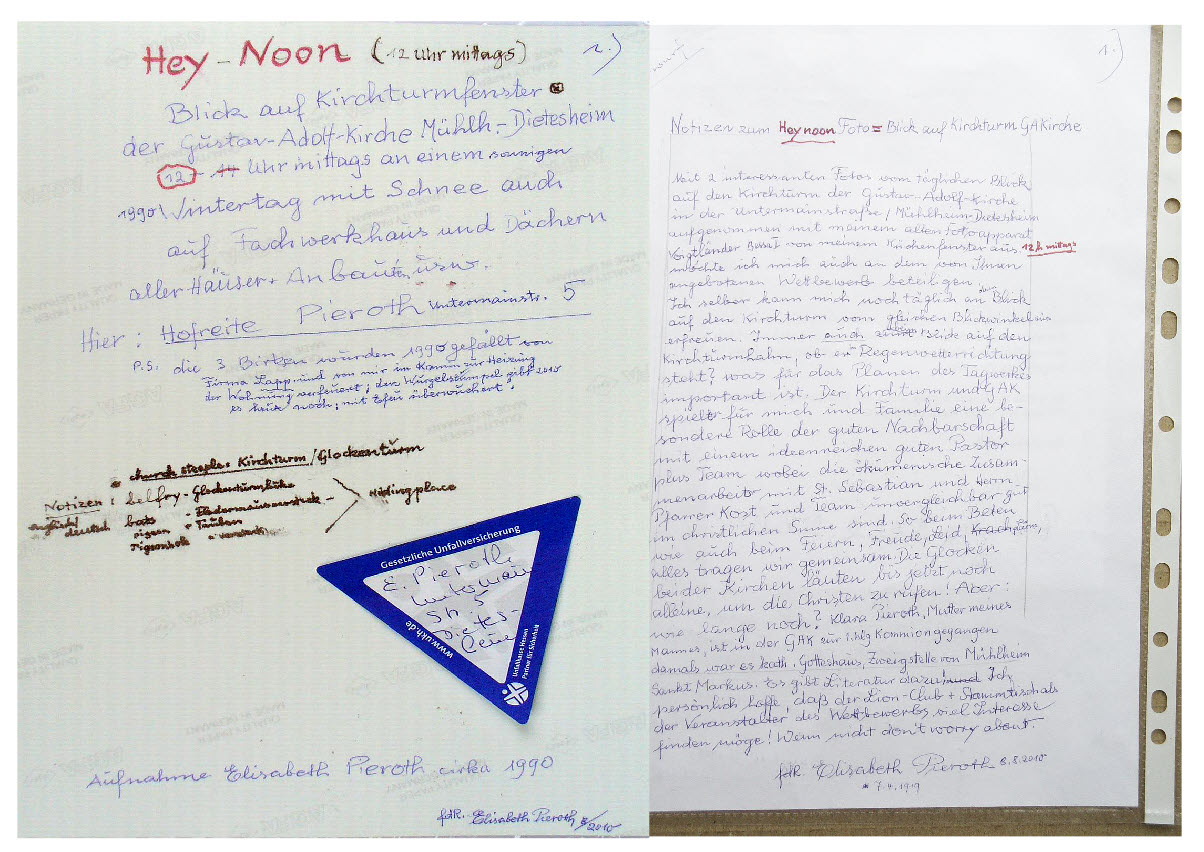 Hey-Noon (12 Uhr mittags) 2.)
Blick auf Kirchturmfenster
der Gustav-Adolf-Kirche Mühlh.-Dietesheim
12 - Uhr mittags an einem sonnigen
1990 Wintertag mit Schnee auch
auf Fachwerkhaus und Dächern
aller Häuser + Anbauten usw.
Hier: Hofreite Pieroth Untermainstr. 5
P.S. die 3 Birken wurden 1990 gefällt von
Firma Zapp und von mir im Kamin zur Heizung
der Wohnung verfeuert; der Wurzelstumpel gibt 2010
es heute noch, mit Efeu überwuchert.
church steeple = Kirchturm/Glockenturm
Notizen: belfry - Glockenturmluke
englisch/ bats - Fledermausunterschlupf
deutsch Tauben
Hidingplace
Gesetzliche Unfallversicherung
E. Pieroth
Untermain
Str. 5
Dietes-
heim
www.ukh.de
Unfallkasse Hessen
Partner für Sicherheit
Aufnahme Elisabeth Pieroth cirka 1990
fdR. Elisabeth Pieroth 8/2010
1.)
Notizen zum Heynoon Foto = Blick auf Kirchturm GAKirche
Mit 2 interessanten Fotos vom täglichen Blick
auf den Kirchturm der Gustav-Adolf-Kirche
in der Untermainstraße/Mühlheim-Dietesheim
aufgenommen mit meinem alten Fotoapparat
Voigtländer Bessa I von meinem Küchenfenster aus 12 h mittags
möchte ich mich auch an dem von Ihnen
angebotenen Wettbewerb beteiligen.
Ich selber kann mich noch täglich an dem Blick
auf den Kirchturm vom gleichen Blickwinkel aus
erfreuen. Immer auch Blick auf den
Kirchturmhahn, ob er Regenwetterrichtung
steht? was für das Planen des Tagwerkes
important ist. Der Kirchturm und GAK
spielt für mich und Familie eine be-
sondere Rolle der guten Nachbarschaft
mit einem ideenreichen guten Pastor
plus Team wobei die ökumenische Zusam-
menarbeit mit St. Sebastian und Herrn
Pfarrer Kost und Team unvergleichbar gut
im christlichen Sinne sind. So beim Beten
wie auch beim Feiern, Freude, Leid,
alles tragen wir gemeinsam. Die Glocken
beider Kirchen läuten bis jetzt noch
alleine, um die Christen zu rufen! Aber:
wie lange noch? Klara Pieroth, Mutter meines
Mannes, ist in der GAK zur 1. hlg Kommion gegangen
damals war es kath. Gotteshaus, Zweigstelle von Mühlheim
Sankt Markus. Es gibt Literatur dazu! Ich
persönlich hoffe, daß der Lion-Club + Stammtisch als
der Veranstalter des Wettbewerbs viel Interesse
finden möge! Wenn nicht don't worry about.
fdR. Elisabeth Pieroth 8.8.2010
* 7.4.1919